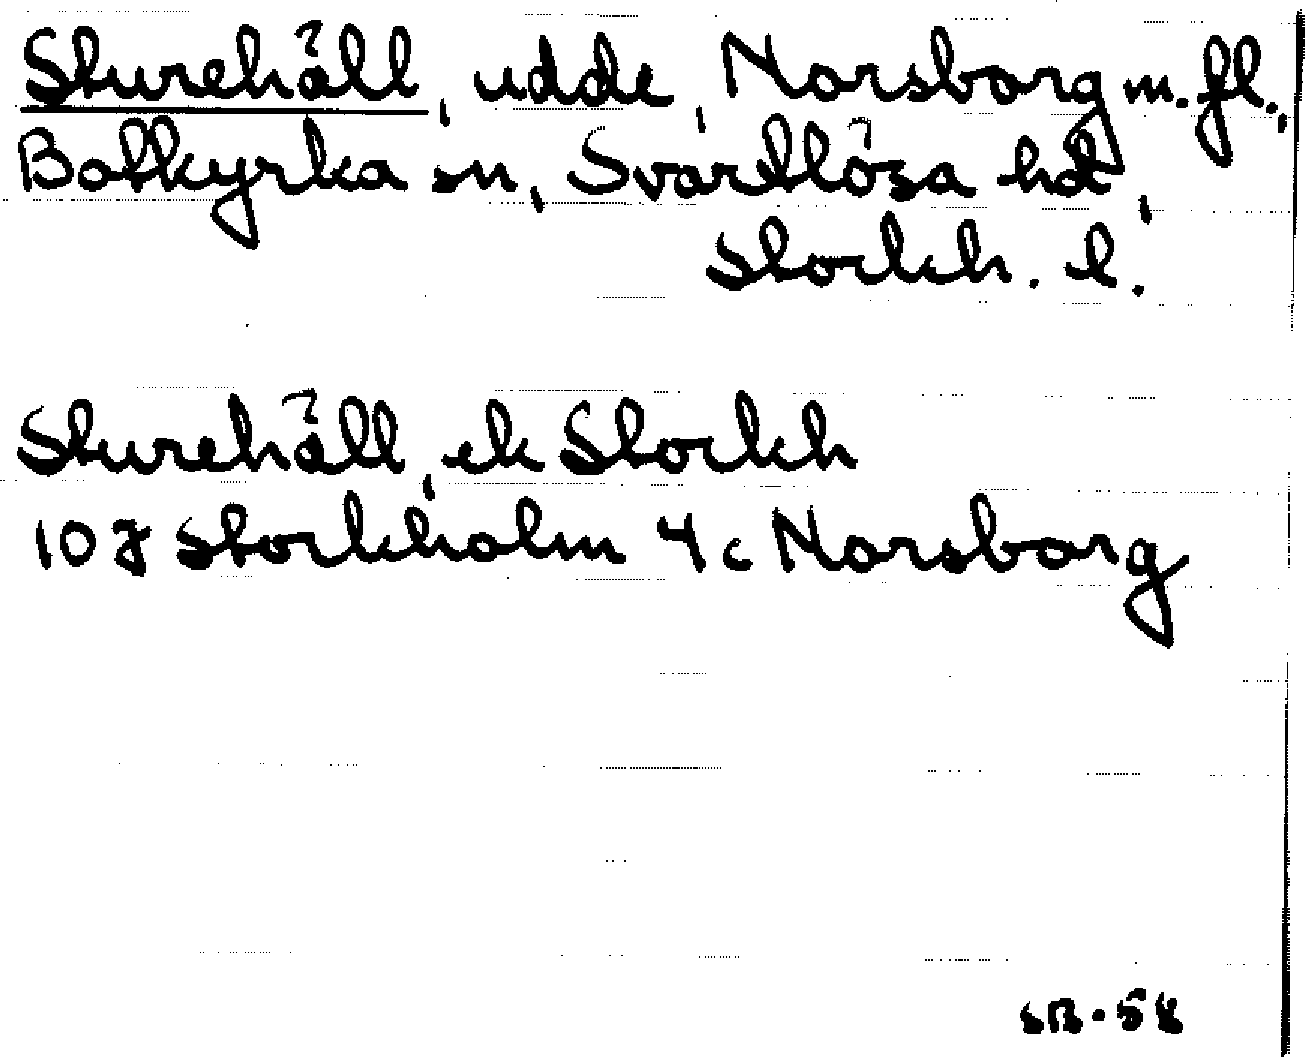 Sturehäll, udde, Norsborg m. fl.,
Botkyrka sn, Svartlösa hd,
Stockh. l.
Sturehäll, ek Stockh
10 J Stockholm 4 c Norsborg
SB-58